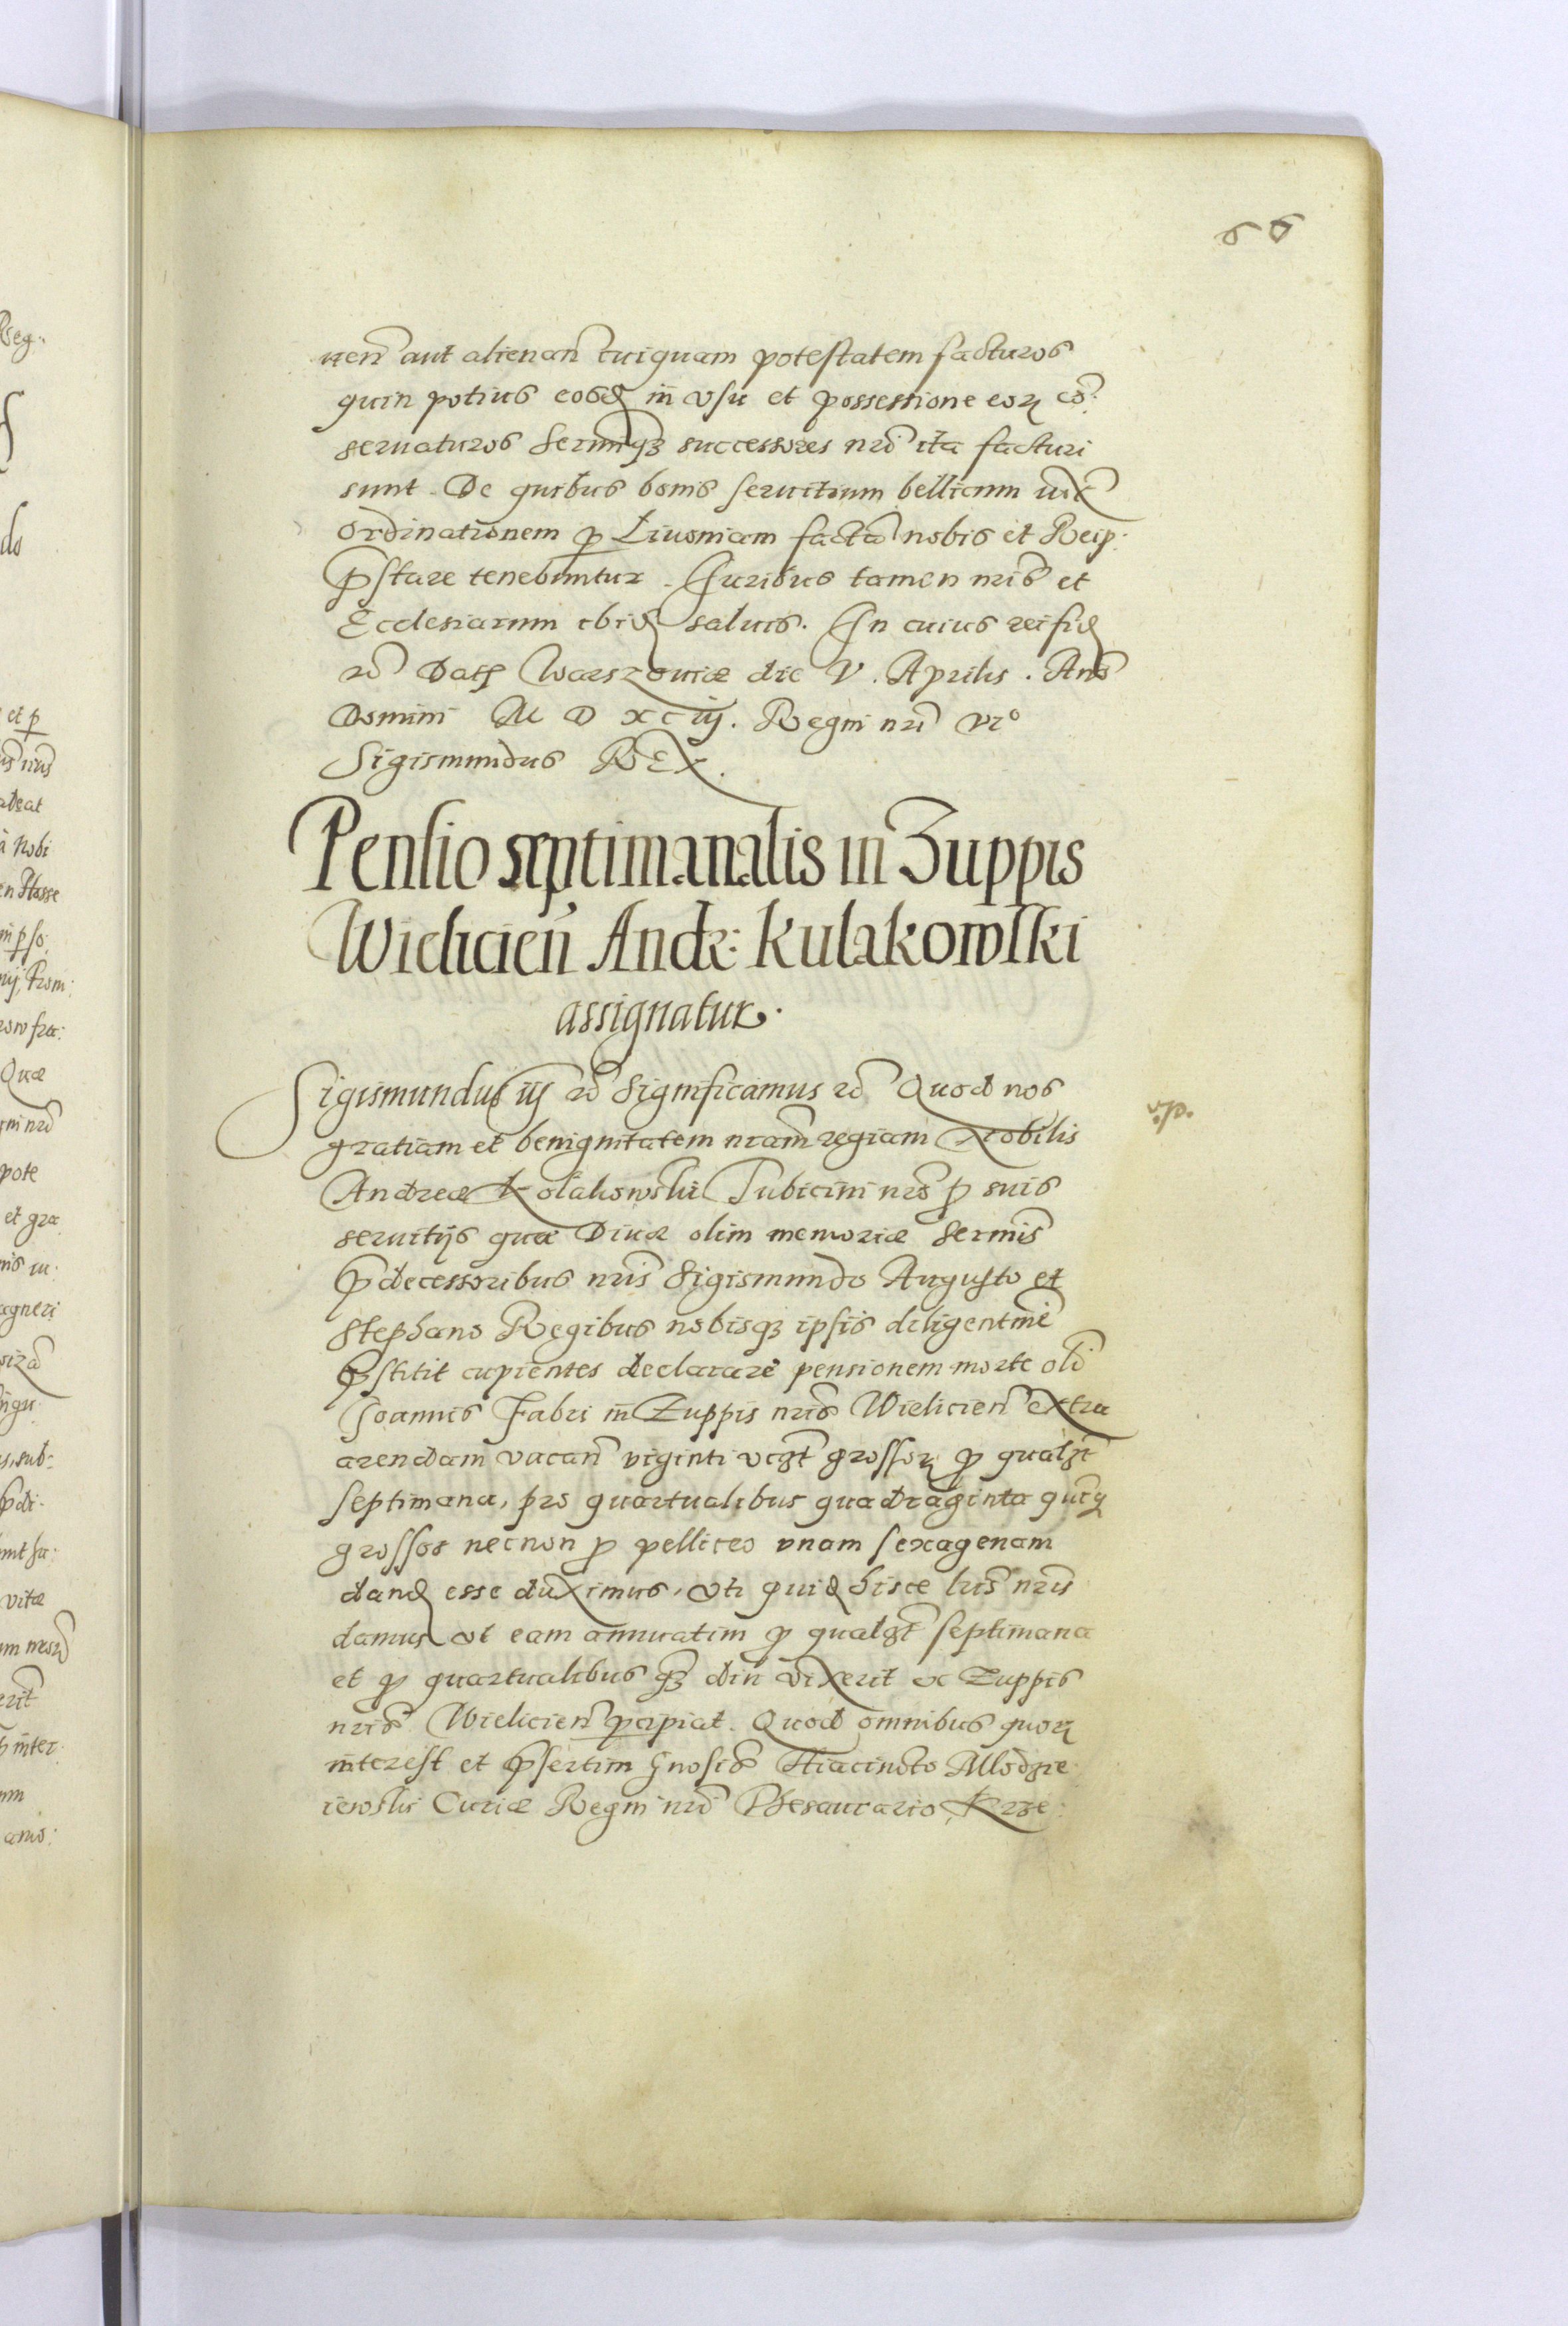 66
uen̄ aut alienan̄ cuiquam potestatem facturos
quin potius eosd in vsu et possessione eorꝝ co̅:
seruaturos Sermiq3 successores nr̄i ita facturi
sunt. De quibus bonis seruitium bellicum iux̄
Ordinationem ꝑ Liuoniam factā nobis et Reip:
p̄stare tenebuntur. Iuribus tamen nris̄ et
Ecclesiarum ibid saluis. In cuius rei fid
rō Datt Warszouiæ die V. Aprilis. Anō
Domini M D XC iij. Regni nrī vi°
Sigismundus REX.
Pensio septimanalis in Zuppis
Wielicień Andr: Kulakowski
assignatur.
Sigismundus iij rō Significamus rō Quod nos
v.p.
gratiam et benignitatem nram̄ regiam Nobilis
Andreæ Kolakowski Tubicini nrō p suis
seruitijs quæ Diuæ olim memoriæ Sermis̄
p̄decessoribus nris̄ Sigismundo Augusto et
Stephano Regibus nobisq3 ipsis diligentmē
p̄stitit cupientes declarare pensionem morte oli̅
Ioannis Fabri in Zuppis nris̄ Wielicien̄ extra
arendam vacan̄ viginti vcz̄t grossorꝝ ꝓ qualz̄t
septimana, pro quartualibus quadraginta quinq
grossos necnon ꝓ pelliceo vnam sexagenam
dand esse duximus, vti quid hisce lris̄ nris̄
damus vt eam annuatim ꝓ qualz̄t septimana
et ꝓ quartualibus q̄3 diu vixerit ex Zuppis
nris̄ Wielicien̄ ꝑcipiat. Quod omnibus quorꝝ
interest et p̄sertim Gnosis̄ Hiacincto Mlodzie
iewski Curiæ Regni nrī Thesaurario, Krze: